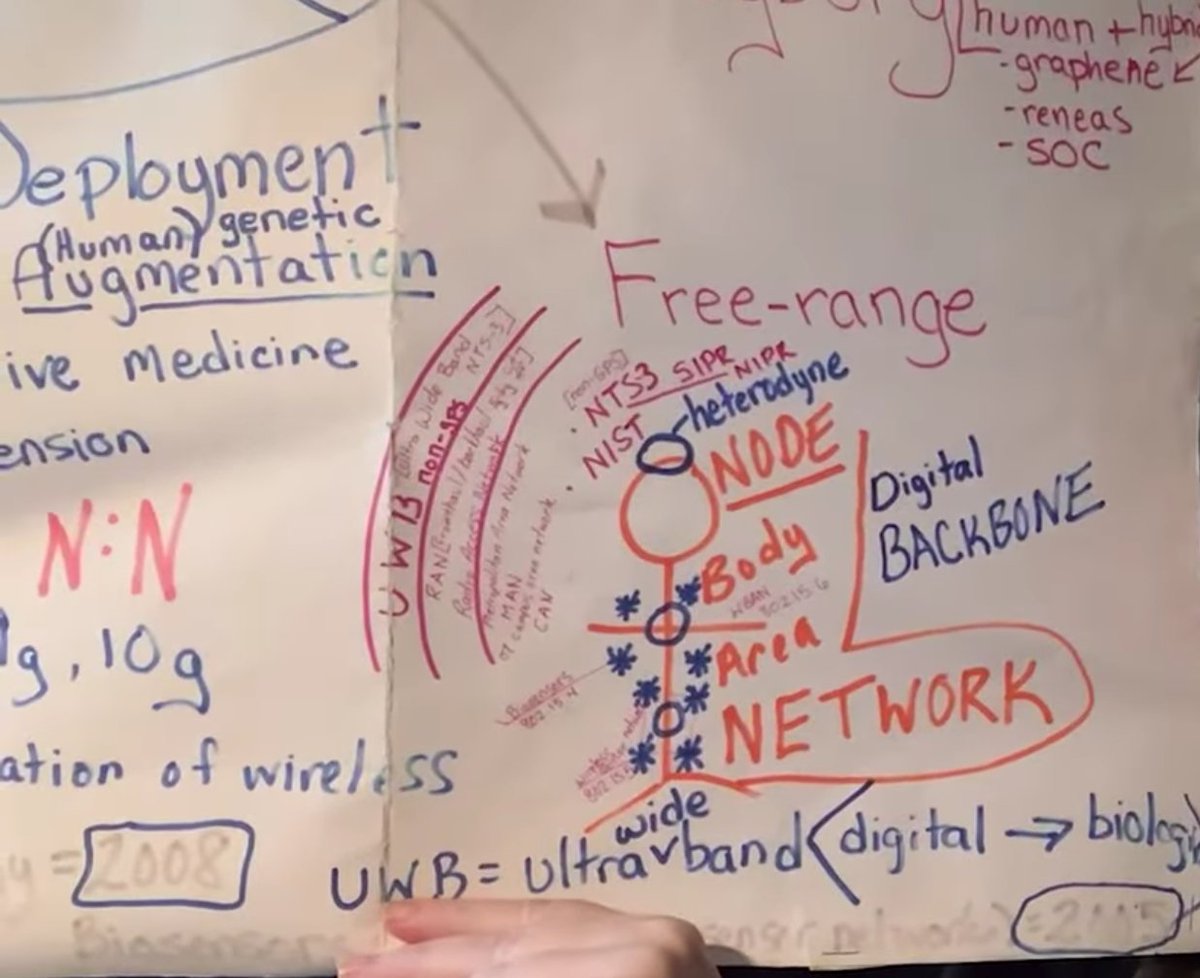 human + hybri
- graphene
- reneas
- SOC
Deployment
(Human) genetic
Augmentation
ive medicine
ension
N:N
g, 10g
ation of wireless
y = 2008
Biosensors
Free-range
[non-GPS]
· NTS3 SIPR NIPR
· NIST
heterodyne
NODE
Body
WBAN
802.15.6
Area
NETWORK
Digital
BACKBONE
UWB Wide Band NTS-3]
non-GPS
RAN
Radio Access Network
Metropolitan Area Network
MAN
or campus area network
CAN
Biosensors
802.15.4
wide
UWB = ultra band < digital → biologi
network) = 2005 +